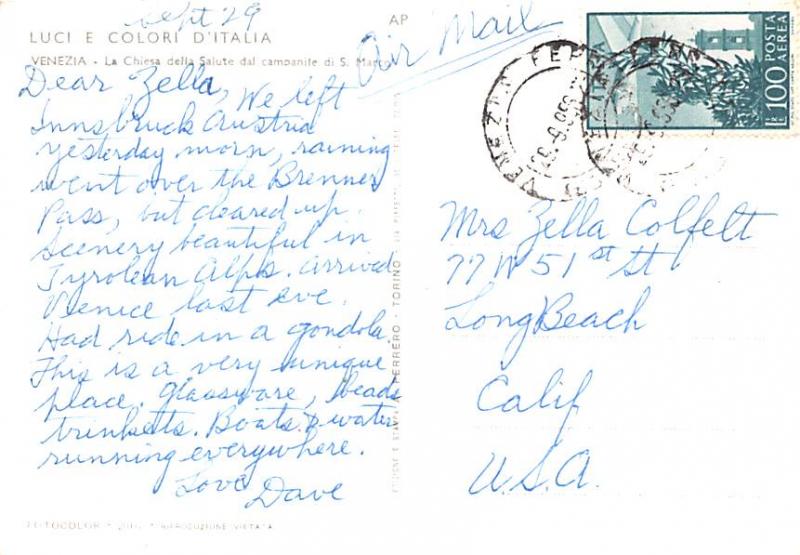 Sept 29
AP
LUCI E COLORI D'ITALIA
Air Mail
VENEZIA - La Chiesa della Salute dal campanile di S. Marco
Dear Zella, We left
Innsbruck Austria
yesterday morn, raining
went over the Brenner
Pass, but cleared up.
Scenery beautiful in
Tyrolean Alps. Arrived
Venice last eve.
Had ride in a gondola.
This is a very unique
place. Glassware, beads
trinketts. Boats & water
running everywhere.
Love
Dave
FOTOCOLOR RIPRODUZIONE VIETATA
FERRERO - TORINO
POSTA
AEREA
100
VENEZIA FERR
Mrs Zella Colfelt
77 W 51st St
Long Beach
Calif
U.S.A.